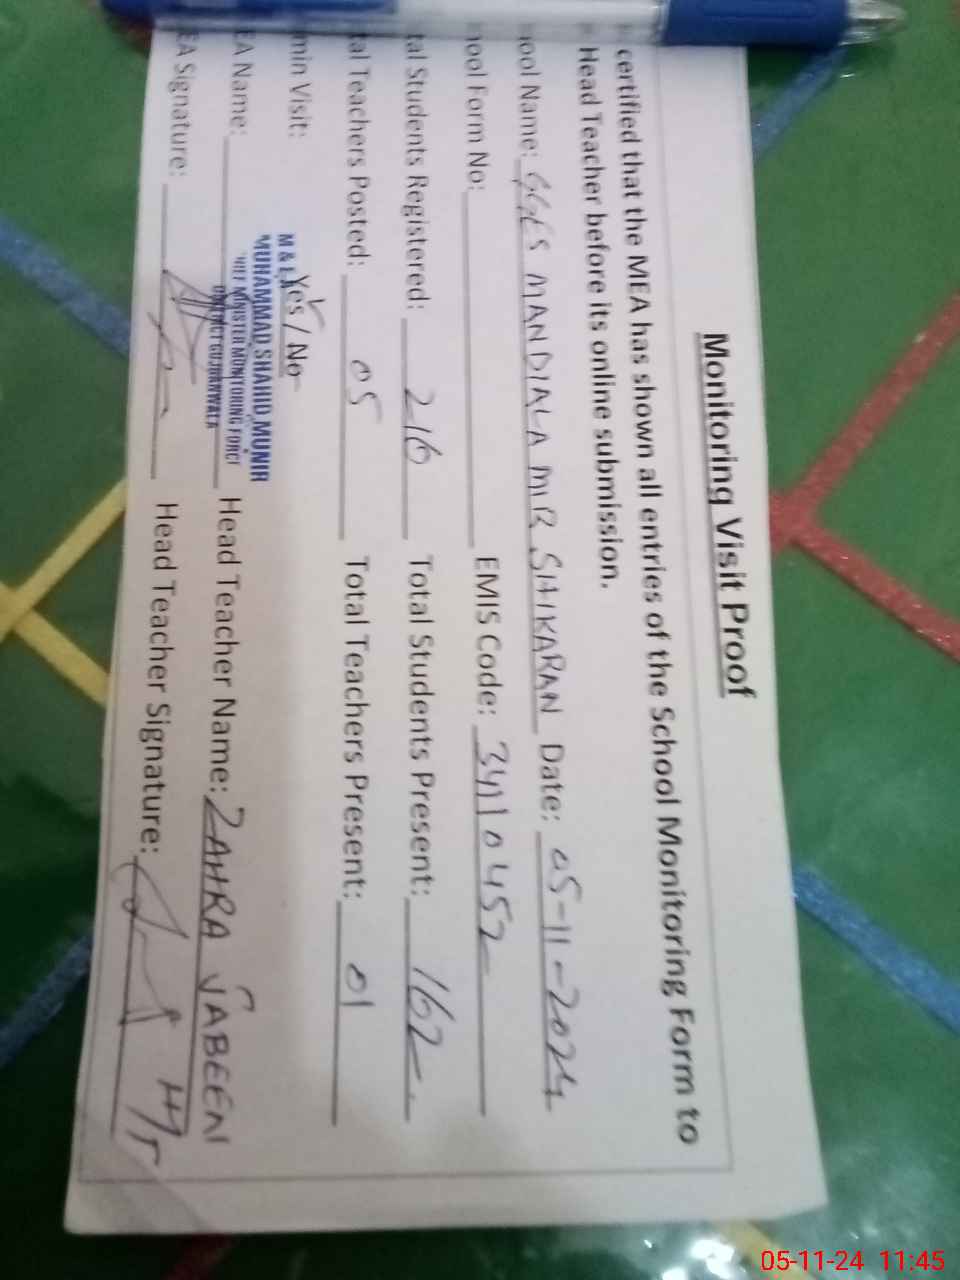 Monitoring Visit Proof
certified that the MEA has shown all entries of the School Monitoring Form to
Head Teacher before its online submission.
ool Name: GGES MANDIALA MIR SHIKARAN Date: 05-11-2024
ool Form No: EMIS Code: 34110452
tal Students Registered: 216 Total Students Present: 162
tal Teachers Posted: 05 Total Teachers Present: 01
min Visit: Yes / No
M & E
MUHAMMAD SHAHID MUNIR
CHIEF MINISTER MONITORING FORCE
DISTRICT GUJRANWALA
EA Name: Head Teacher Name: ZAHRA JABEEN
EA Signature: Head Teacher Signature:
05-11-24 11:45